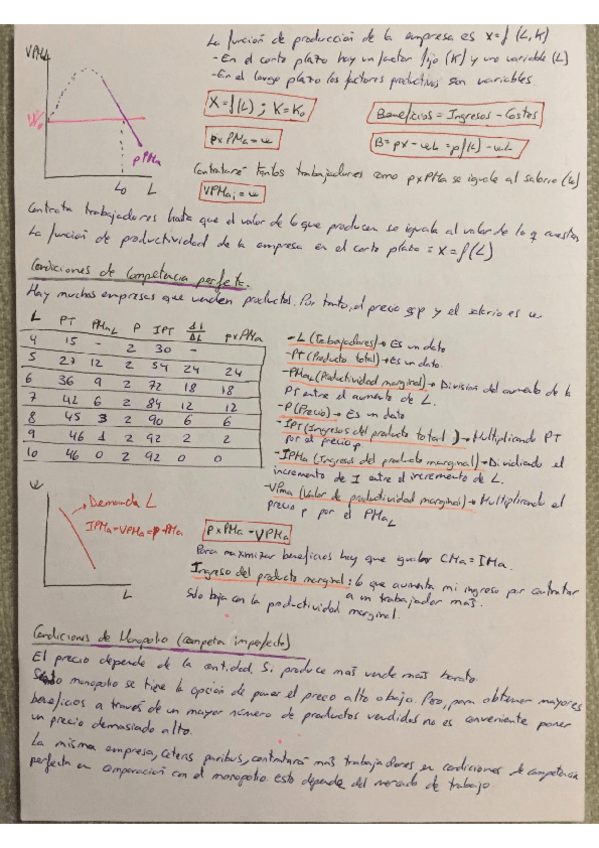 La función de producción de la empresa es X=f(L,K)
- En el corto plazo hay un factor fijo (K) y uno variable (L)
- En el largo plazo los factores productivos son variables.
VPMa
W₀
pPMa
L₀ L
X=f(L) ; K=K₀
Beneficios = Ingresos - Costos
pxPMa = w
B = px - wL = pf(L) - wL
Contratará tantos trabajadores como pxPMa se iguale al salario (w)
VPMa = w
Contrata trabajadores hasta que el valor de lo que producen se iguala al valor de lo q cuestan
La función de productividad de la empresa en el corto plazo = X=f(L)
Condiciones de competencia perfecta.
Hay muchas empresas que venden productos. Por tanto, el precio es p y el salario es w
L PT PMaL P IPT ΔI/ΔL pxPMa
4 15 - 2 30 -
5 27 12 2 54 24 24
6 36 9 2 72 18 18
7 42 6 2 84 12 12
8 45 3 2 90 6 6
9 46 1 2 92 2 2
10 46 0 2 92 0 0
- L (Trabajadores) → Es un dato
- PT (Producto total) → Es un dato.
- PMaL (Productividad marginal) → Division del aumento de la
PT entre el aumento de L.
- P (Precio) → Es un dato
- IPT (Ingresos del producto total) → Multiplicando PT
por el precio p
- IPMa (Ingresos del producto marginal) → Dividiendo el
incremento de I entre el incremento de L.
- VPma (Valor de productividad marginal) → Multiplicando el
precio p por el PMaL
W
Demanda L
IPMa=VPMa=p·PMa
L
pxPMa = VPMa
Para maximizar beneficios hay que igualar CMa = IMa.
Ingreso del producto marginal: lo que aumenta mi ingreso por contratar
a un trabajador más.
Solo baja con la productividad marginal.
Condiciones de Monopolio (competen imperfecta)
El precio depende de la cantidad. Si produce más vende más barato.
monopolio se tiene la opción de poner el precio alto o bajo. Pero, para obtener mayores
beneficios a través de un mayor número de productos vendidos no es conveniente poner
un precio demasiado alto.
La misma empresa, ceteris paribus, contratará más trabajadores en condiciones de competencia
perfecta en comparación con el monopolio. esto depende del mercado de trabajo.